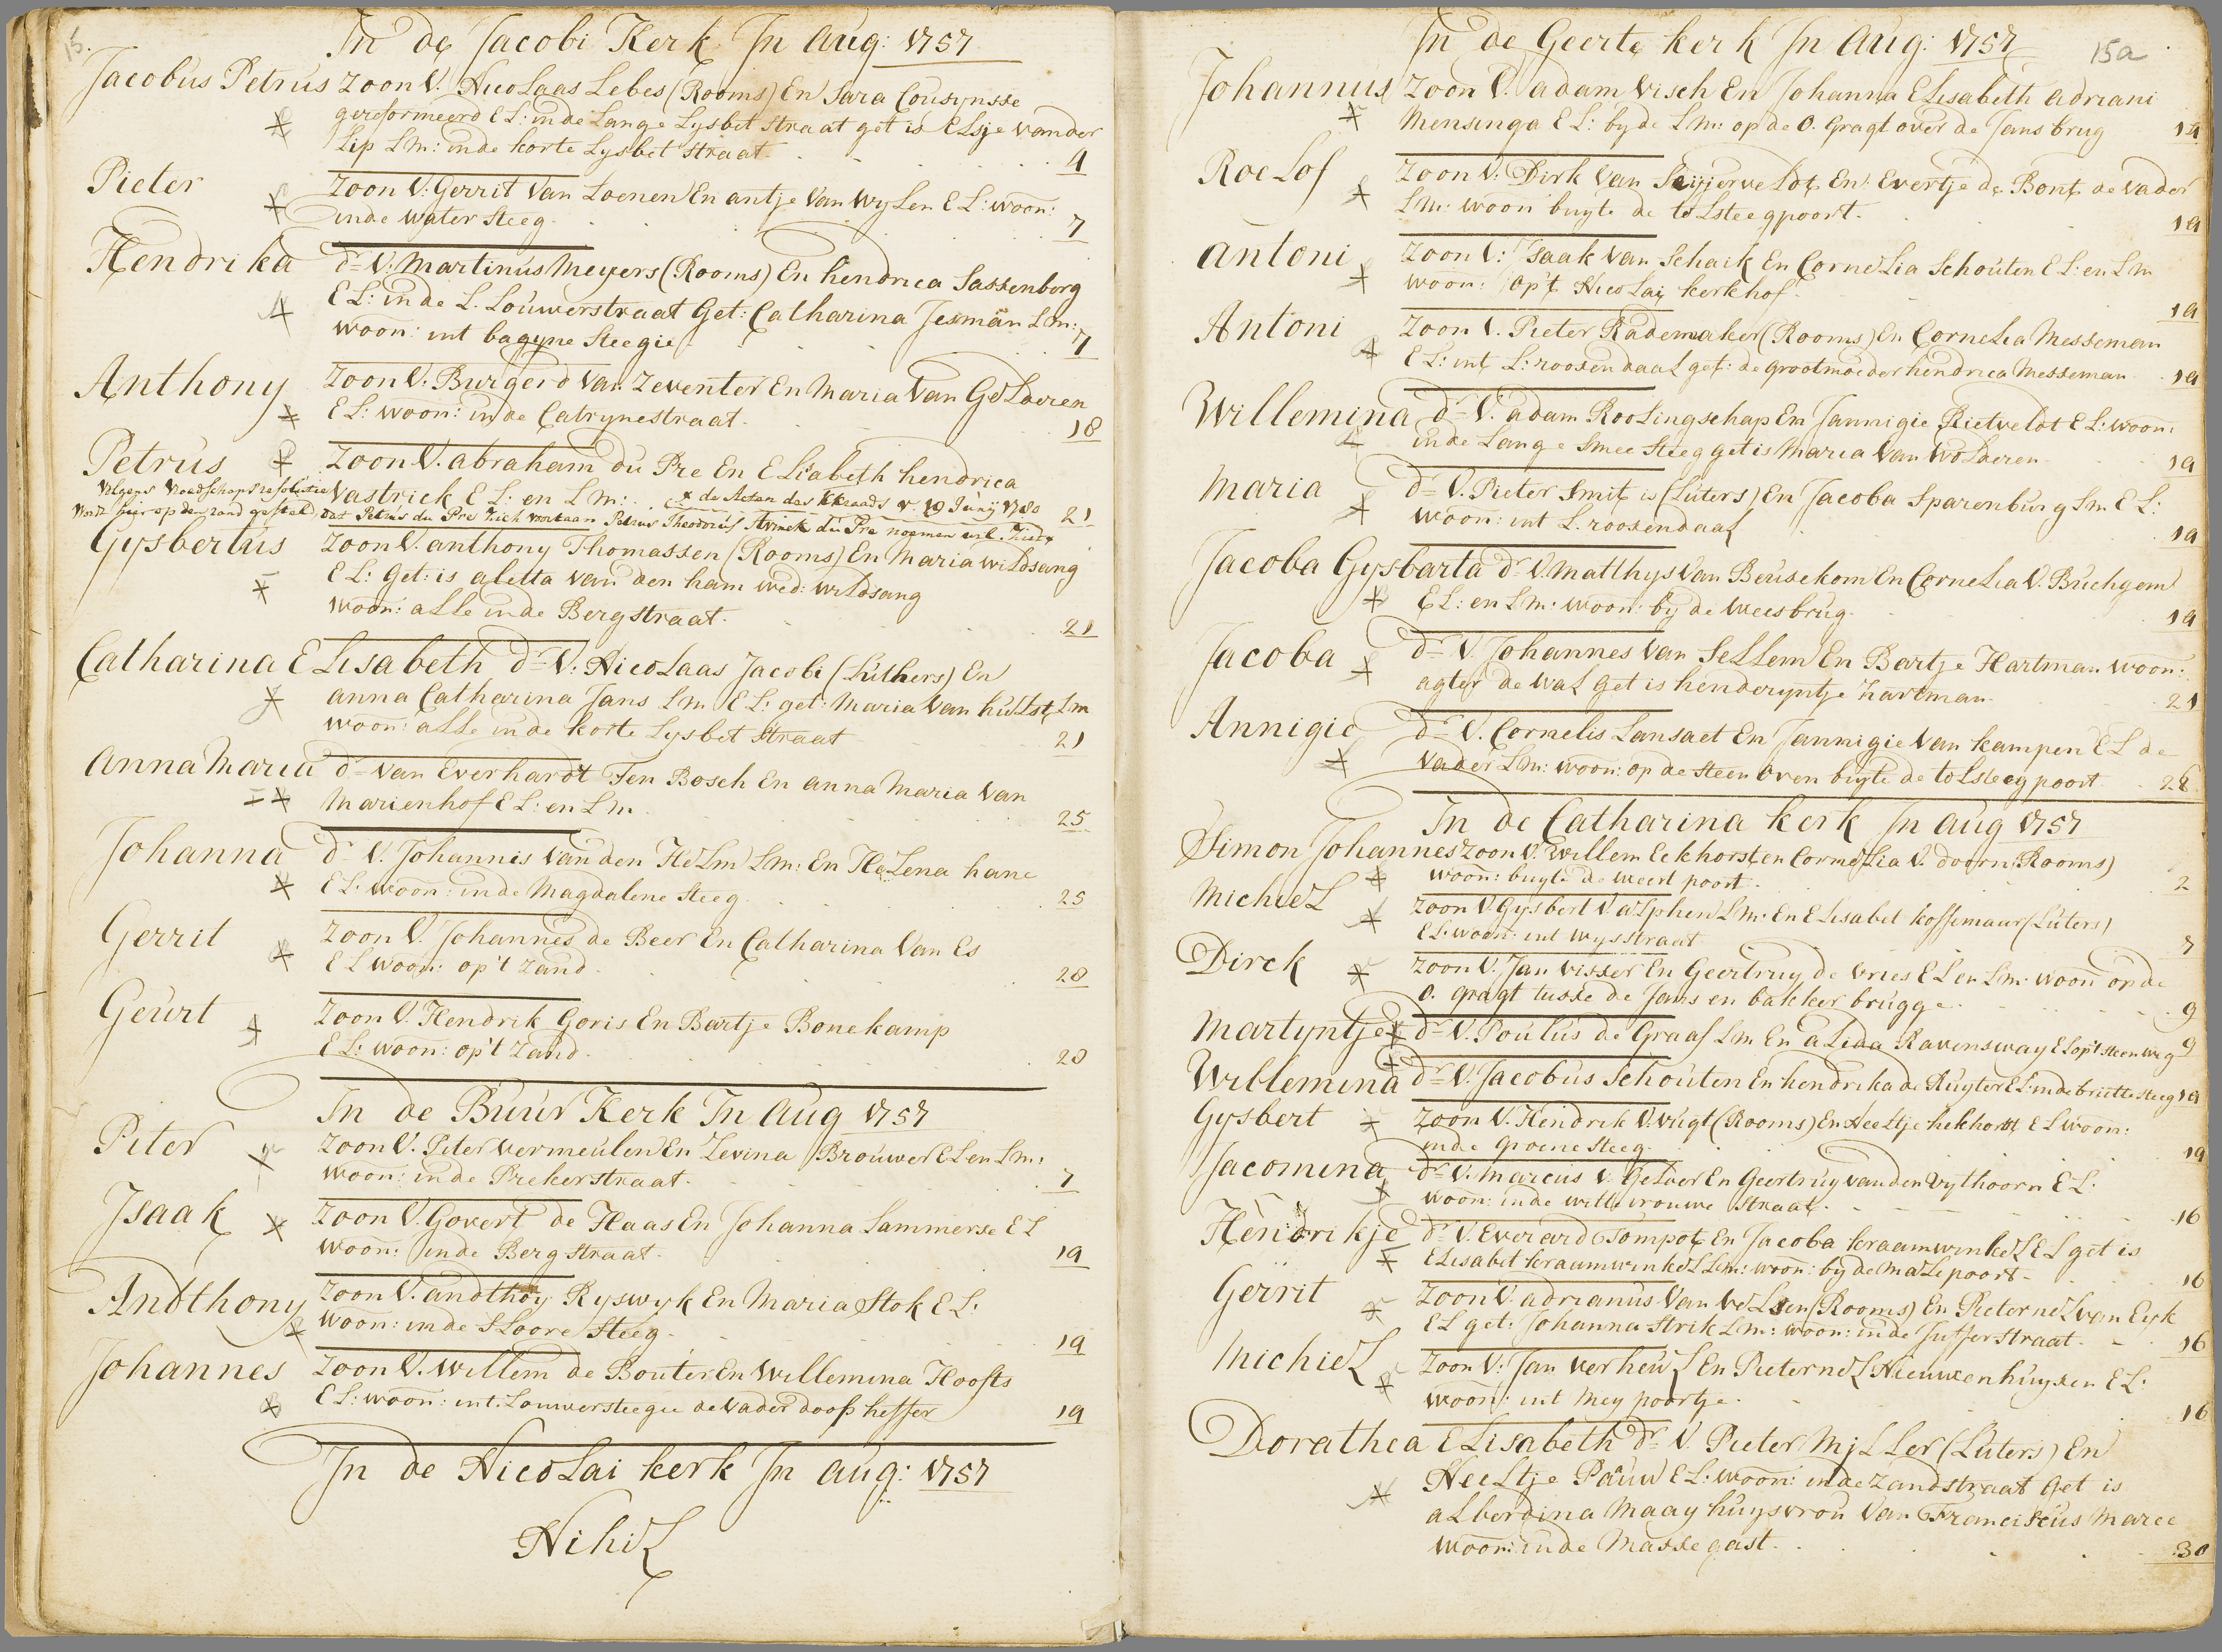 15.
In de Jacobi Kerk In Aug: 1757
Jacobus Petrus zoon V. Nicolaas Lebes (Rooms) En Sara Cousynsse
gereformeerd E L: in de Lange Lysbet straat get is Elsje vander
Lip Lm: in de korte Lysbet straat. 4
Pieter Zoon V: Gerrit Van Loenen En antje Van Wylen E L: woon:
in de water steeg. 7
Hendrika dr V: Martinus Meyers (Rooms) En hendrica Sassenborg
E L: in de L. Louwerstraat Get: Catharina Jesman Lm:
woon: int bagyne steegie. 7
Anthony Zoon V: Burgerd Van Zeventer En Maria Van Gelderen
E L: woon: in de Catrynestraat. 18
Petrus Zoon V. abraham du Pre En Elisabeth hendrica
Vastrick E L: en Lm: 21
Volgens Vroedschaps resolutie x de Acten des KKraads v. 19 Juny 1780
word hier op den rand gesteld, dat Petrus du Pre zich voortaan Petrus Theodorus du Pre noemen zal.
Gysbertus Zoon V. anthony Thomassen (Rooms) En Maria wildsang
E L: Get: is aletta van den ham wed: wildsang
woon: alle in de Bergstraat. 21
Catharina Elisabeth dr V: Nicolaas Jacobi (Luthers) En
anna Catharina Jans Lm E L: get: Maria Van hulst Lm
woon: alle in de korte Lysbet Straat 21
Anna Maria dr van Everhardt Ten Bosch En anna Maria Van
Marienhof E L: en Lm. 25
Johanna dr V. Johannis Van den Helm Lm: En Helena hane
E L: woon: in de Magdalene steeg. 25
Gerrit Zoon V. Johannes de Beer En Catharina Van Es
E L woon: op't Zand. 28
Geurt Zoon V. Hendrik Goris En Bartje Bonekamp
E L: woon: op't Zand. 28
In de Buur Kerk In Aug 1757
Piter Zoon V. Piter Vermeulen En Levina Brouwer E L en Lm:
woon: in de Prekerstraat. 7
Isaak Zoon V. Govert de Haas En Johanna Lammerse E L
woon: in de Bergstraat. 19
Andthony Zoon V. andthoy Ryswyk En Maria Stok E L:
woon: in de Sloore Steeg. 19
Johannes Zoon V. Willem de Bouter En Willemina Hoofts
E L: woon: int. Louwersteegie de Vader doop heffer 19
In de Nicolai kerk In Aug: 1757
Nihil
15a
In de Geerte kerk In Aug: 1757
Johannus Zoon V. adam Visch En Johanna Elisabeth adriani
Mensinga E L: by de Lm: op de O. Gragt over de Jans brug 14
Roelof Zoon V. Dirk Van En Evertje de Bont de Vader
Lm: woon buyte de tolsteegpoort. 19
Antoni Zoon V: Isaak Van Schaik En Cornelia Schouten E L: en Lm
woon: op't Nicolai kerkhof. 19
Antoni Zoon V. Pieter Rademaker (Rooms) En Cornelia Messeman
E L: int L: roosendaal get: de grootmoeder hendrica Messeman 19
Willemina dr V. adam Roolingschap En Jannigie Rietveldt E L: woon:
in de Lange Smee steeg get is Maria Van Wolderen 19
Maria dr V. Pieter Smit is (Luters) En Jacoba Sparenburg Lm E L:
woon: int L. roosendaal 19
Jacoba Gysbarta dr V. Matthys Van Beusekom En Cornelia V. Buchgem
E L: en Lm: woon: by de Weesbrug. 19
Jacoba dr V. Johannes Van Sellem En Bartje Hartman woon:
agter de Wal get is henderyntje hartman. 21
Annigie dr V. Cornelis Lansaet En Jannigie Van kampen E L de
Vader Lm: woon: op de steen oven buyte de tolsteegpoort. 28
In de Catharina kerk In Aug 1757
Simon Johannes zoon V. Willem Eckhorst en Cornelia V. doorn (Rooms)
woon: buyte de weert poort. 2
Michiel Zoon V. Gysbert V. alphen Lm. En Elisabet koffemaur (Luters)
E L: woon: int wysstraat 7
Dirck Zoon V. Jan Visser En Geertruy de Vries E L en Lm: woon op de
O. gragt tusse de Jans en bakker brugge. 9
Martyntje dr V. Poulus de Graaf Lm En alida Ravensway E L op't steenweg 9
Willemina dr V. Jacobus Schouten En hendrika de Ruyter E L: in de brutte steeg 19
Gysbert Zoon V. Hendrik V. Vugt (Rooms) En Neeltje hekhorst E L woon:
in de groene steeg. 19
Jacomina dr V. Marcus V. Gelder En Geertruy van den Uythoorn E L:
woon: in de witte vrouwe straat. 16
Hendrikje dr V. Everard Tompot En Jacoba kraamwinkel E L get is
Elisabet kraamwinkel Lm: woon: by de Malepoort. 16
Gerrit Zoon V. adrianus Van Velsen (Rooms) En Pieternel van Eyk
E L get: Johanna Strik Lm: woon: in de Jufferstraat. 16
Michiel Zoon V: Jan Verheul En Pieternel Nieuwenhuysen E L:
woon: int Mey poortje. 16
Dorathea Elisabeth dr V. Pieter Mjller (Luters) En
Neeltje Pauw E L: woon: in de Zandstraat Get is
alberdina Maay huysvrou Van Franciscus Maree
woon: in de Massegast. 30